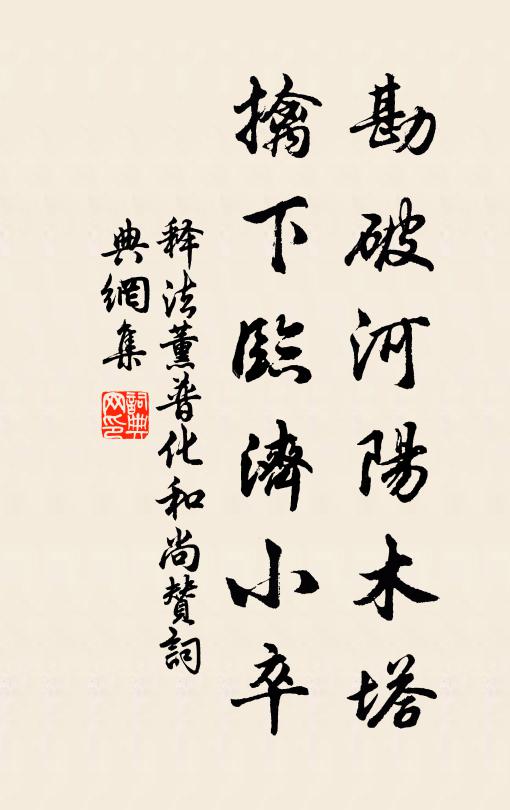 勘破河陽木塔
擒下臨濟小卒
释法薰普化和尚贊詞
典網集
詞典
网印